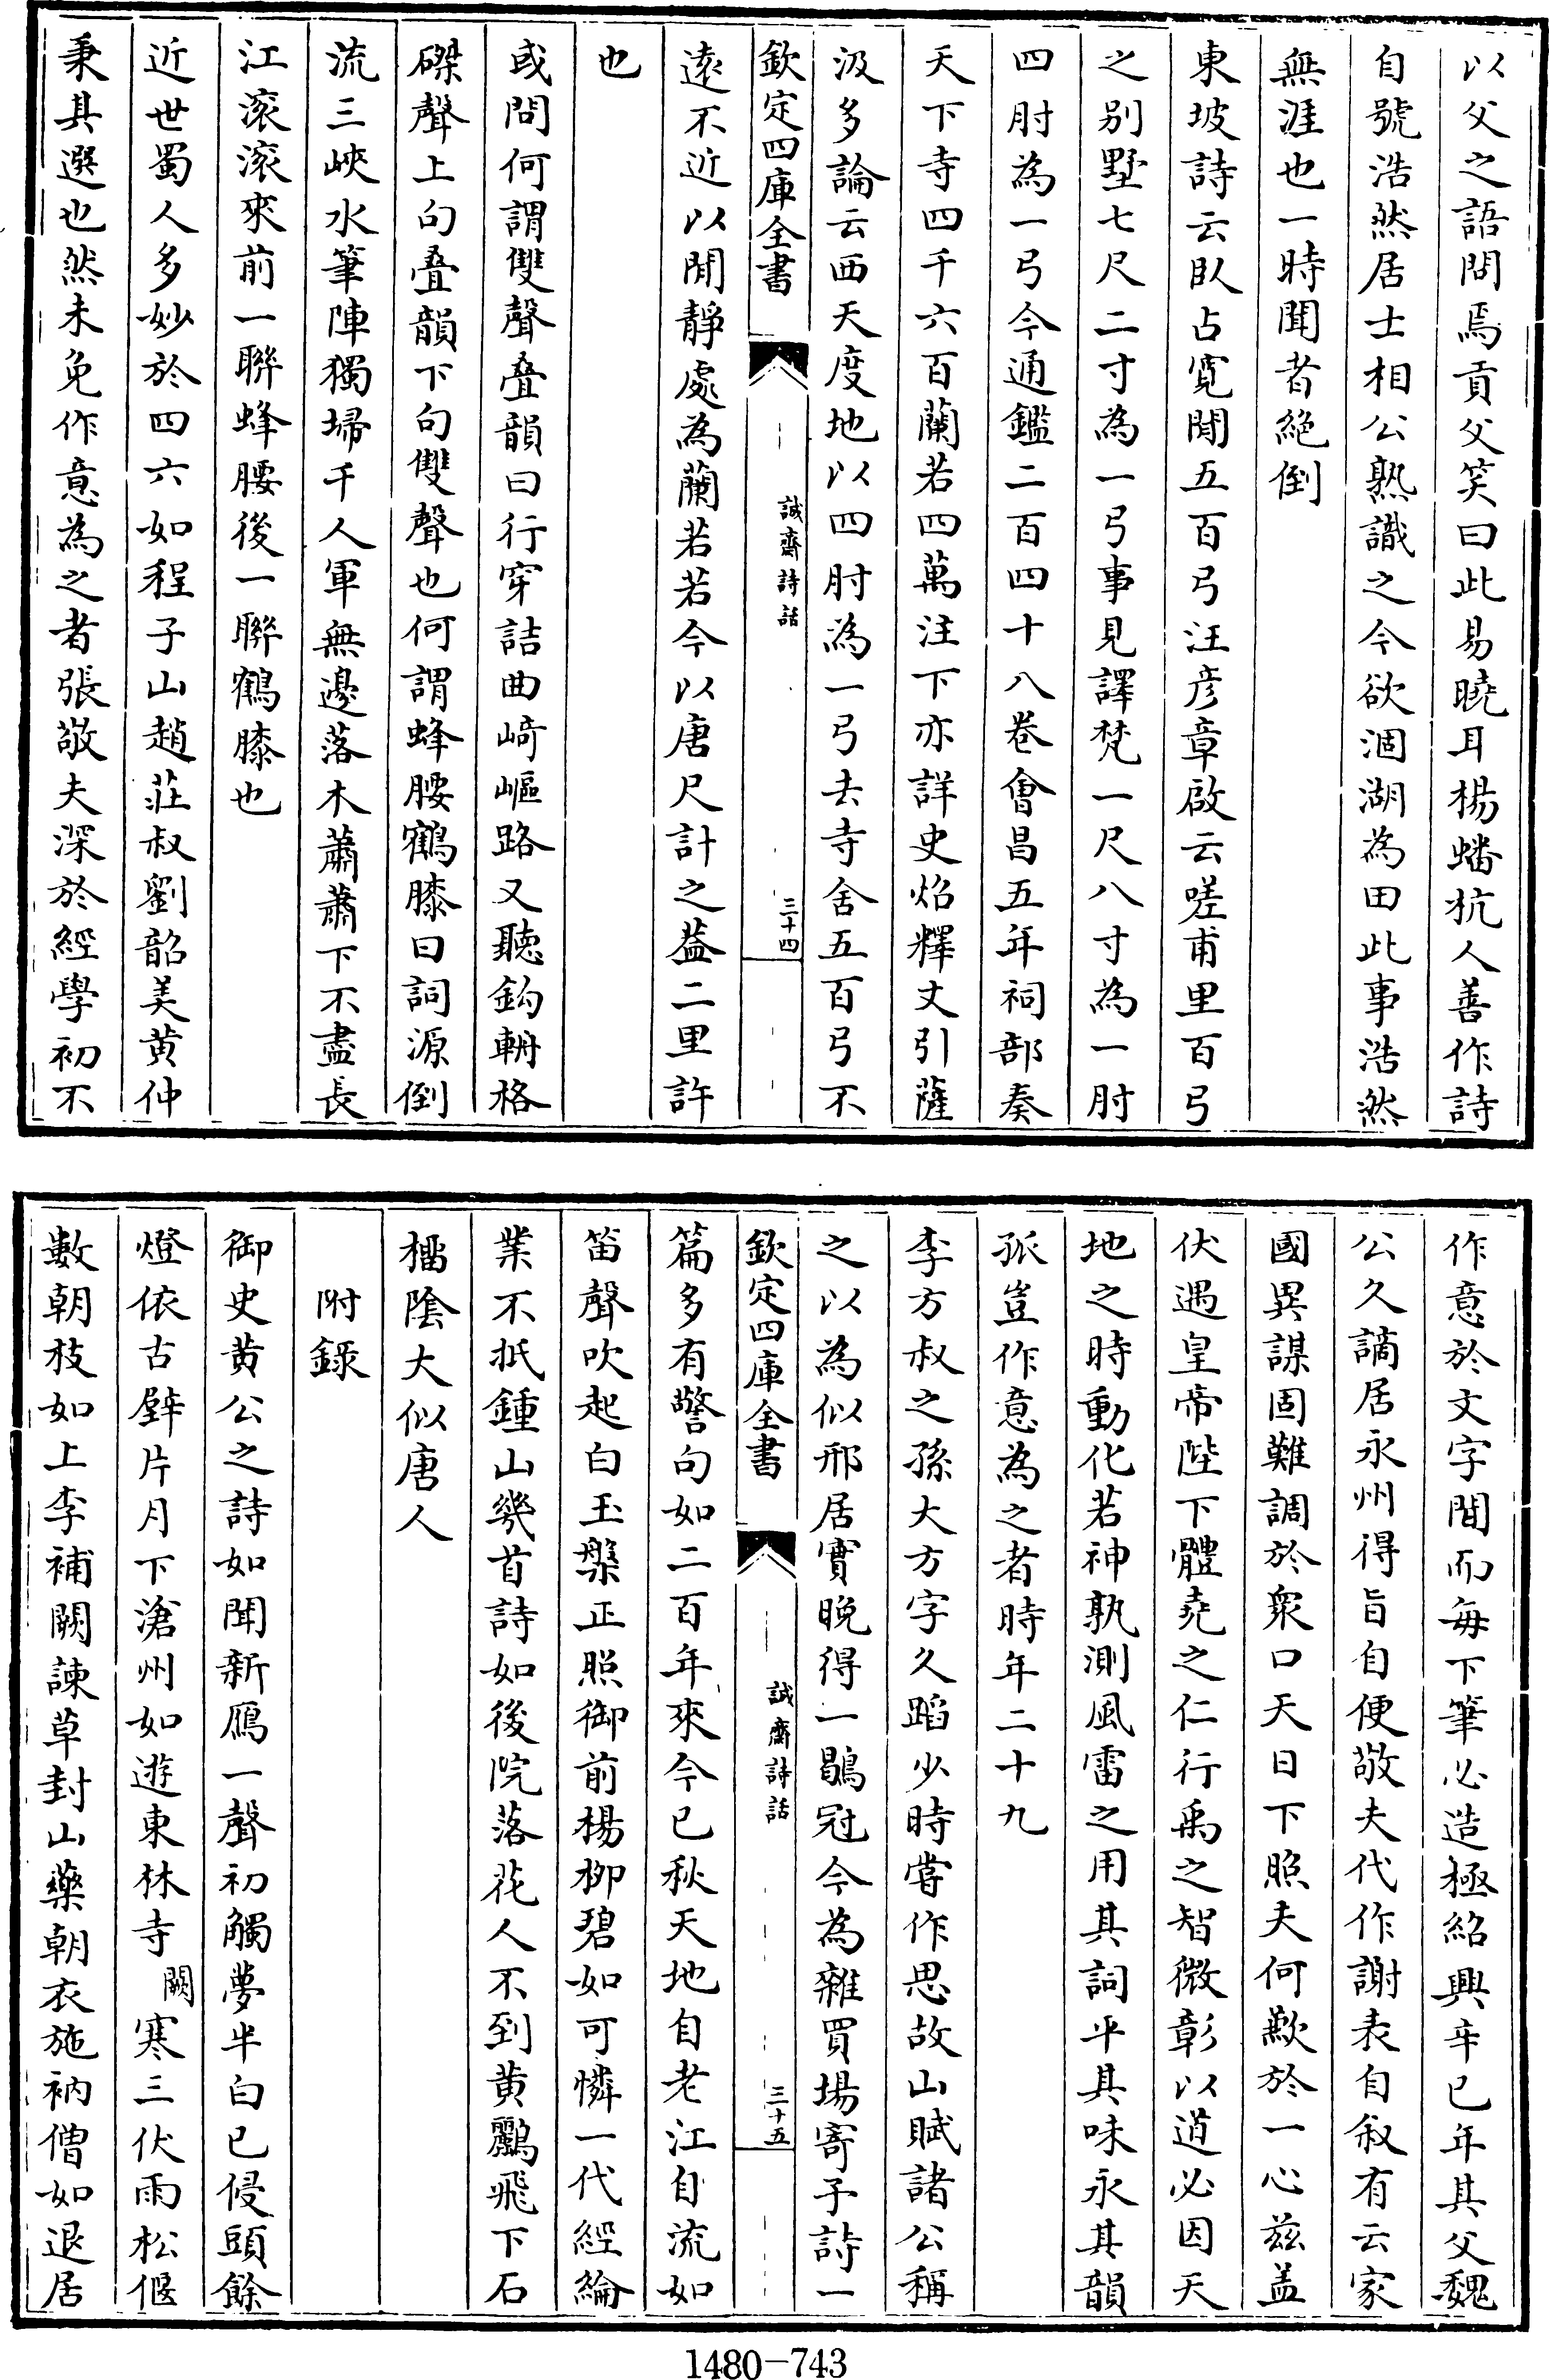 以父之語問焉貢父笑曰此易曉耳楊蟠杭人善作詩
自號浩然居士相公熟識之今欲涸湖為田此事浩然
無涯也一時聞者絶倒
東坡詩云臥占寛閒五百弓汪彦章啟云嗟甫里百弓
之别墅七尺二寸為一弓事見譯梵一尺八寸為一肘
四肘為一弓今通鑑二百四十八卷會昌五年祠部奏
天下寺四千六百蘭若四萬注下亦詳史炤釋文引薩
汲多論云西天度地以四肘為一弓去寺舍五百弓不
欽定四庫全書
誠齋詩話
三十四
遠不近以閒靜處為蘭若若今以唐尺計之葢二里許
也
或問何謂雙聲叠韻曰行穿詰曲崎嶇路又聽鈎輈格
磔聲上句叠韻下句雙聲也何謂蜂腰鶴膝曰詞源倒
流三峽水筆陣獨埽千人軍無邊落木蕭蕭下不盡長
江滚滚來前一聯蜂腰後一聯鶴膝也
近世蜀人多妙於四六如程子山趙莊叔劉韶美黄仲
秉其選也然未免作意為之者張敬夫深於經學初不
作意於文字間而每下筆必造極紹興辛巳年其父魏
公久謫居永州得旨自便敬夫代作謝表自叙有云家
國異謀固難調於衆口天日下照夫何歉於一心兹盖
伏遇皇帝陛下體堯之仁行禹之智微彰以道必因天
地之時動化若神孰測風雷之用其詞平其味永其韻
孤豈作意為之者時年二十九
李方叔之孫大方字久蹈少時嘗作思故山賦諸公稱
之以為似邢居實晚得一鶡冠今為雜買場寄予詩一
欽定四庫全書
誠齋詩話
三十五
篇多有警句如二百年來今已秋天地自老江自流如
笛聲吹起白玉槃正照御前楊栁碧如可憐一代經綸
業不抵鍾山幾首詩如後院落花人不到黄鸝飛下石
榴隂大似唐人
附録
御史黄公之詩如聞新鴈一聲初觸夢半白已侵頭餘
燈依古壁片月下滄州如遊東林寺闕寒三伏雨松偃
數朝枝如上李補闕諫草封山藥朝衣施衲僧如退居
1480-743